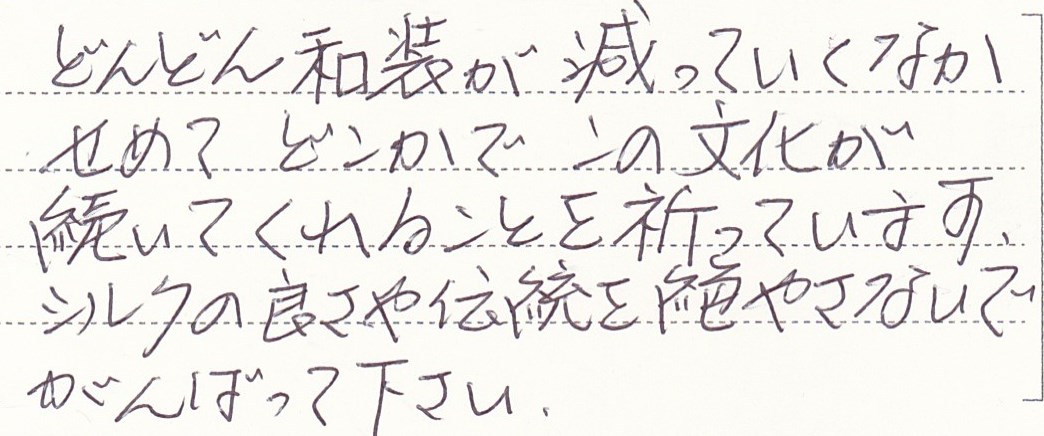 どんどん和装が減っていくなか
せめて どこかで この文化が
続いてくれることを祈っています、
シルクの良さや伝統を絶やさないで
がんばって下さい.